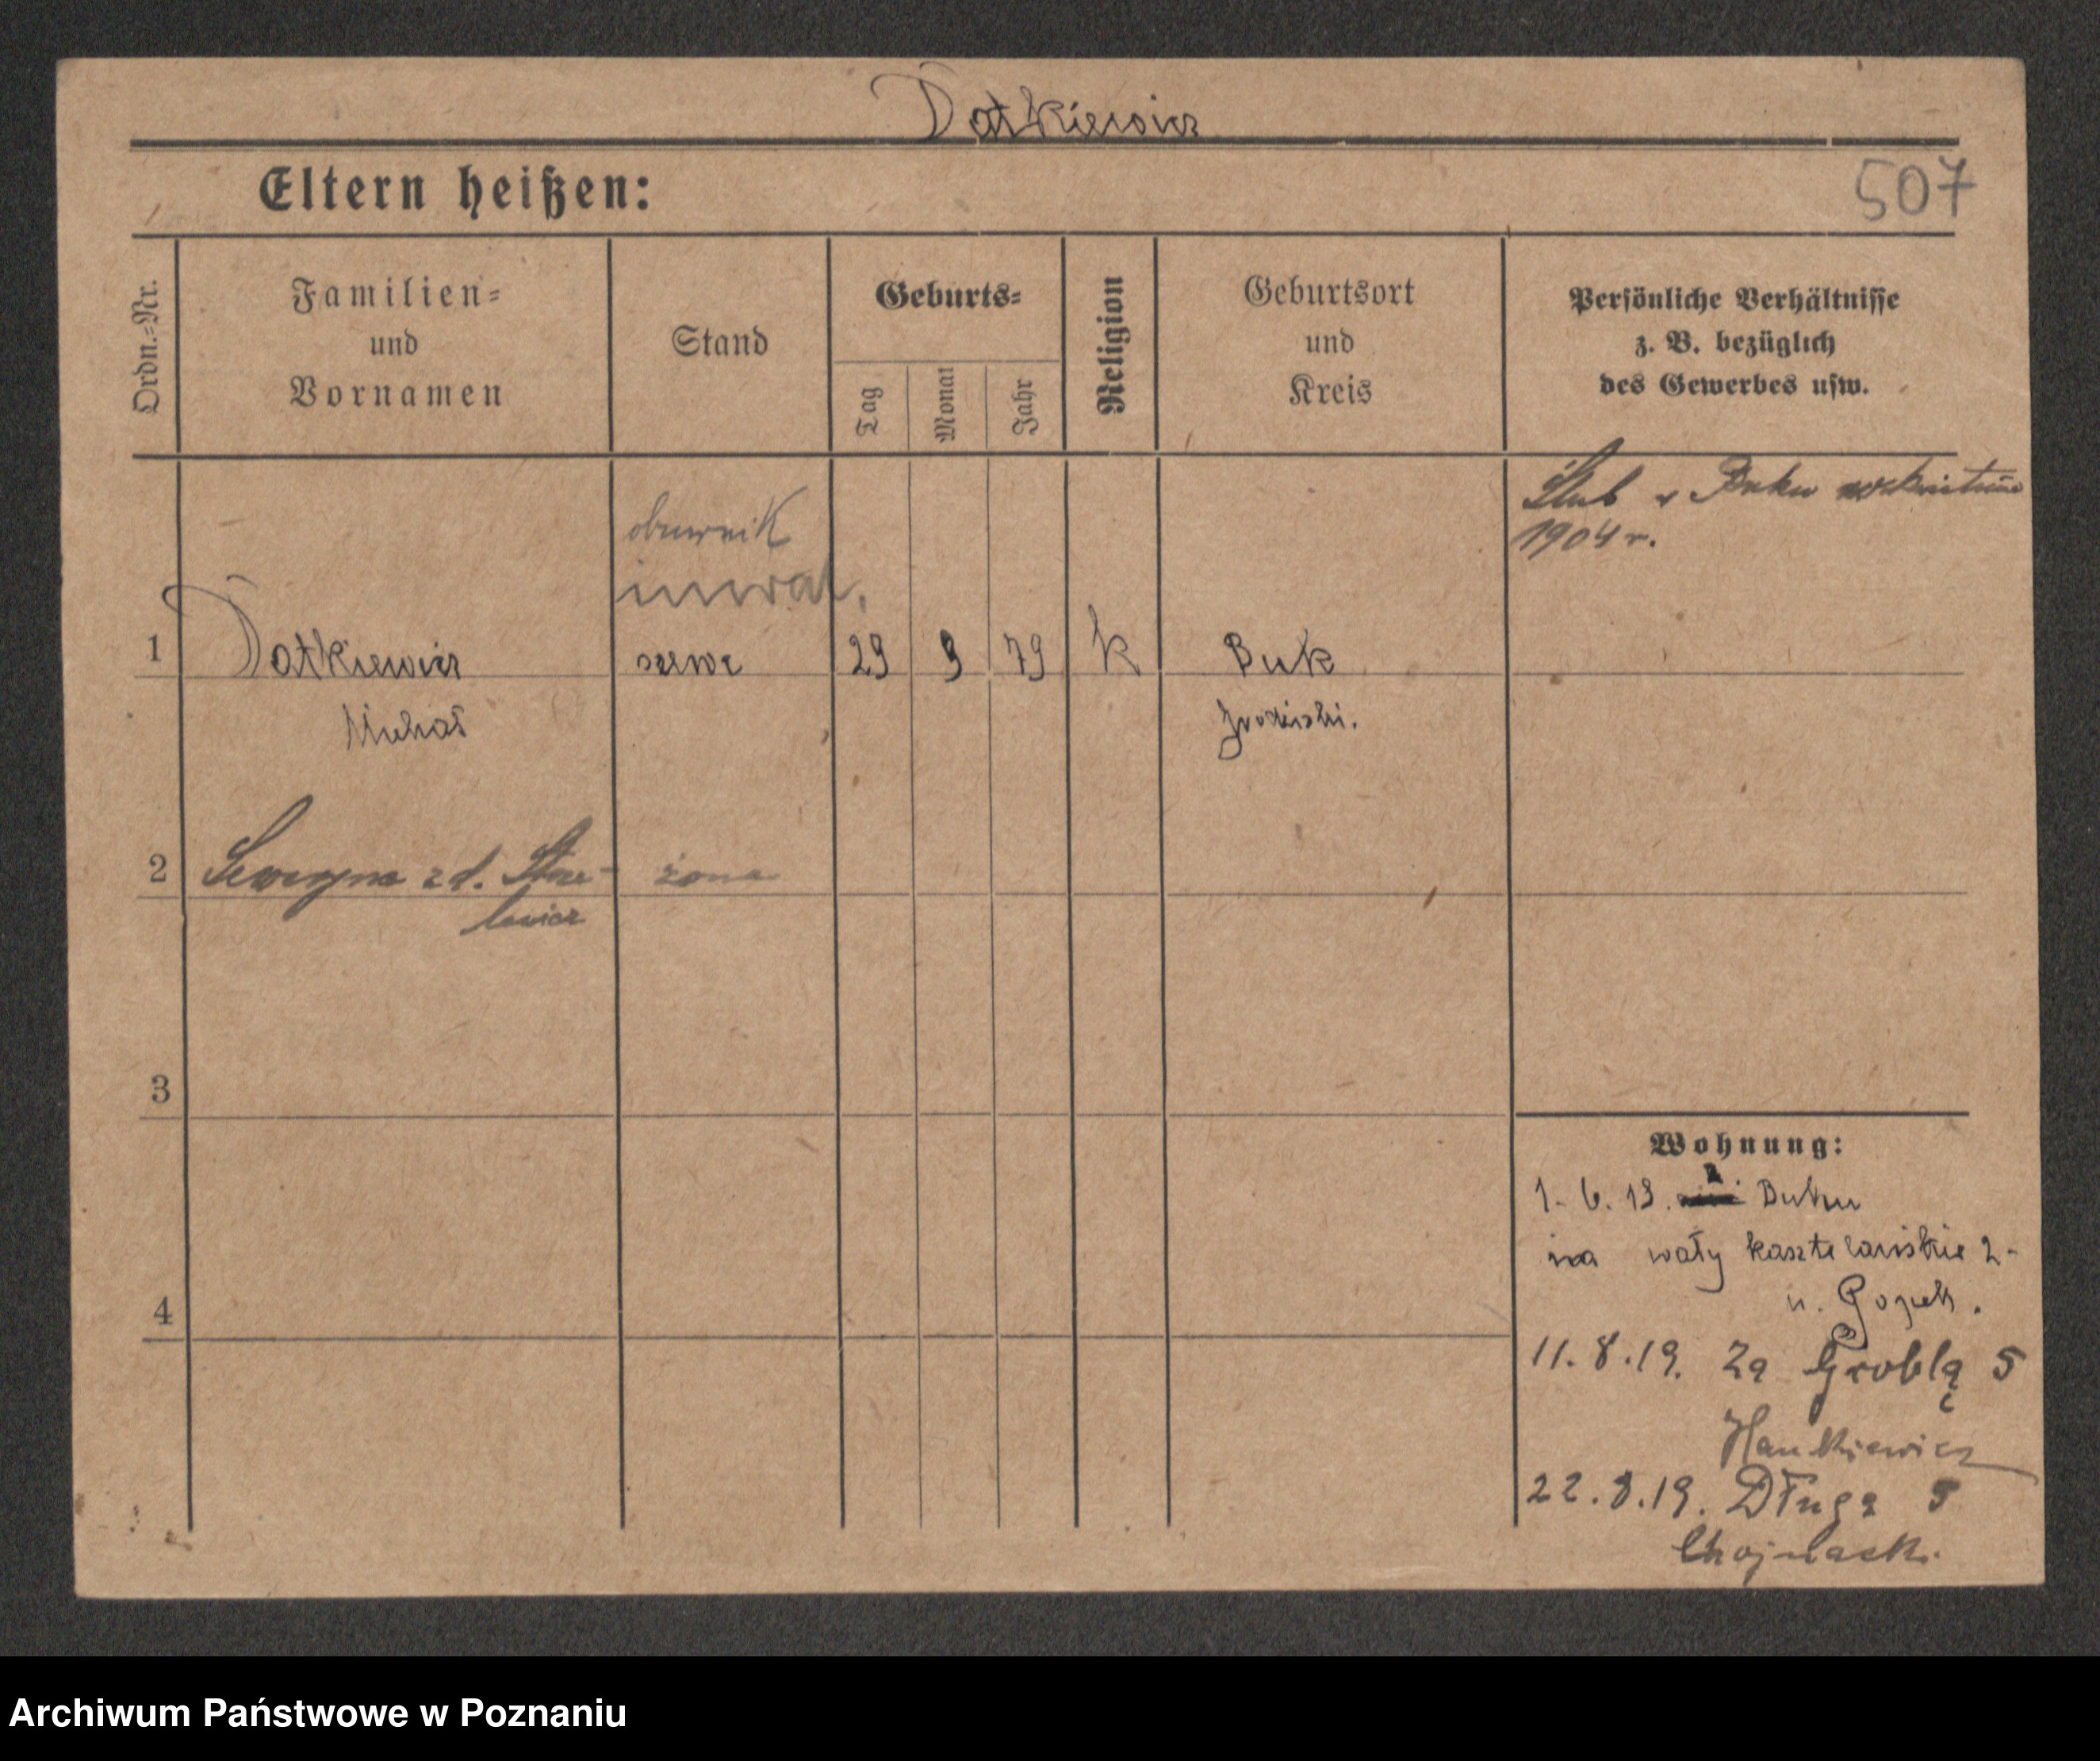 Datkiewicz
Eltern heißen:
507
Ordn.=Nr.
Familien=
und
Vornamen
Stand
Geburts=
Tag
Monat
Jahr
Religion
Geburtsort
und
Kreis
Persönliche Verhältnisse
z. B. bezüglich
des Gewerbes usw.
Ślub w Buku w kwietniu
1904 r.
obuwnik
inwal.
1 Datkiewicz szewc 29 9 79 k Buk
Michał grodziski.
2 Seweryna z d. żona
3
4
Wohnung:
1. 6. 19. z Buku
na wały kasztelańskie 2-
u.
11.8.19. Za Groblą 5
Hankiewicz
22.8.19. Długa 9
Chojnacki.
Archiwum Państwowe w Poznaniu